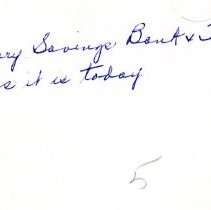 Savings Bank &
s it is today
5